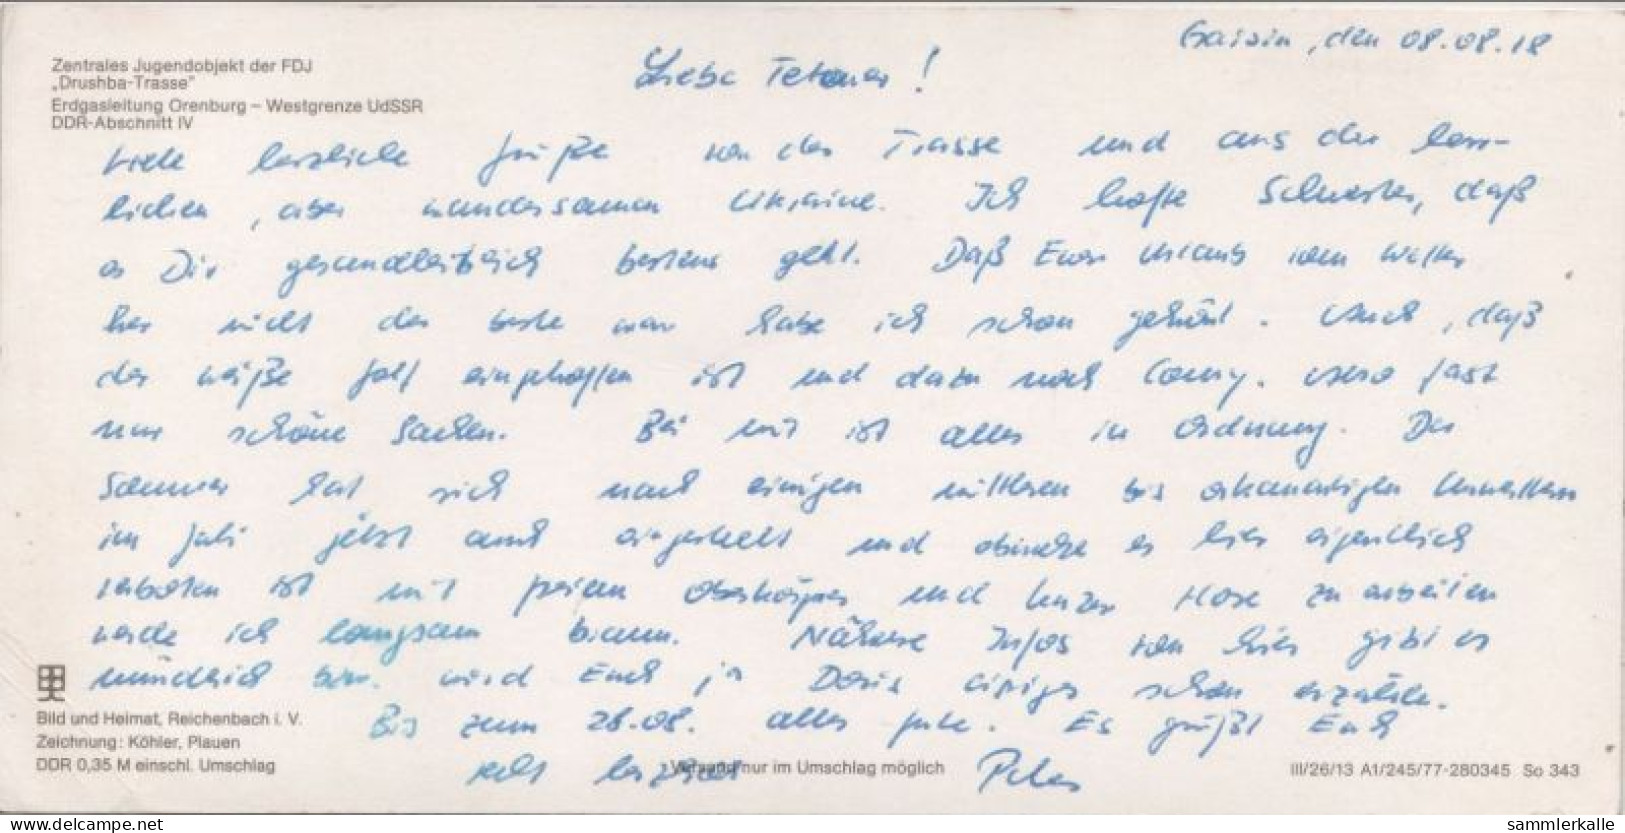 Gaisin, den 08.08.18
Zentrales Jugendobjekt der FDJ
„Drushba-Trasse"
Erdgasleitung Orenburg – Westgrenze UdSSR
DDR-Abschnitt IV
Liebe !
Viele herzliche Grüße von der Trasse und aus der herr-
lichen, aber wundersamen Ukraine. Ich hoffe Schwester, daß
es Dir gesundheitlich bestens geht. Daß Euer Urlaub vom Wetter
her nicht der beste war habe ich schon gehört. Auch, daß
der weiße Golf eingetroffen ist und dazu noch Conny. Also fast
nur schöne Sachen. Bei mir ist alles in Ordnung. Der
Sommer hat sich nach einigen mittleren bis orkanartigen Unwettern
im Juli jetzt auch eingestellt und obwohl es hier eigentlich
verboten ist mit freiem Oberkörper und kurzer Hose zu arbeiten
werde ich langsam braun. Nähere Infos von hier gibt es
mündlich bzw. wird Euch ja Doris einiges schon erzählen.
Bis zum 28.08. alles Gute. Es grüßt Euch
recht herzlich Peter
Bild und Heimat, Reichenbach i. V.
Zeichnung: Köhler, Plauen
DDR 0,35 M einschl. Umschlag
Versand nur im Umschlag möglich
III/26/13 A1/245/77-280345 So 343
www.delcampe.net
sammlerkalle